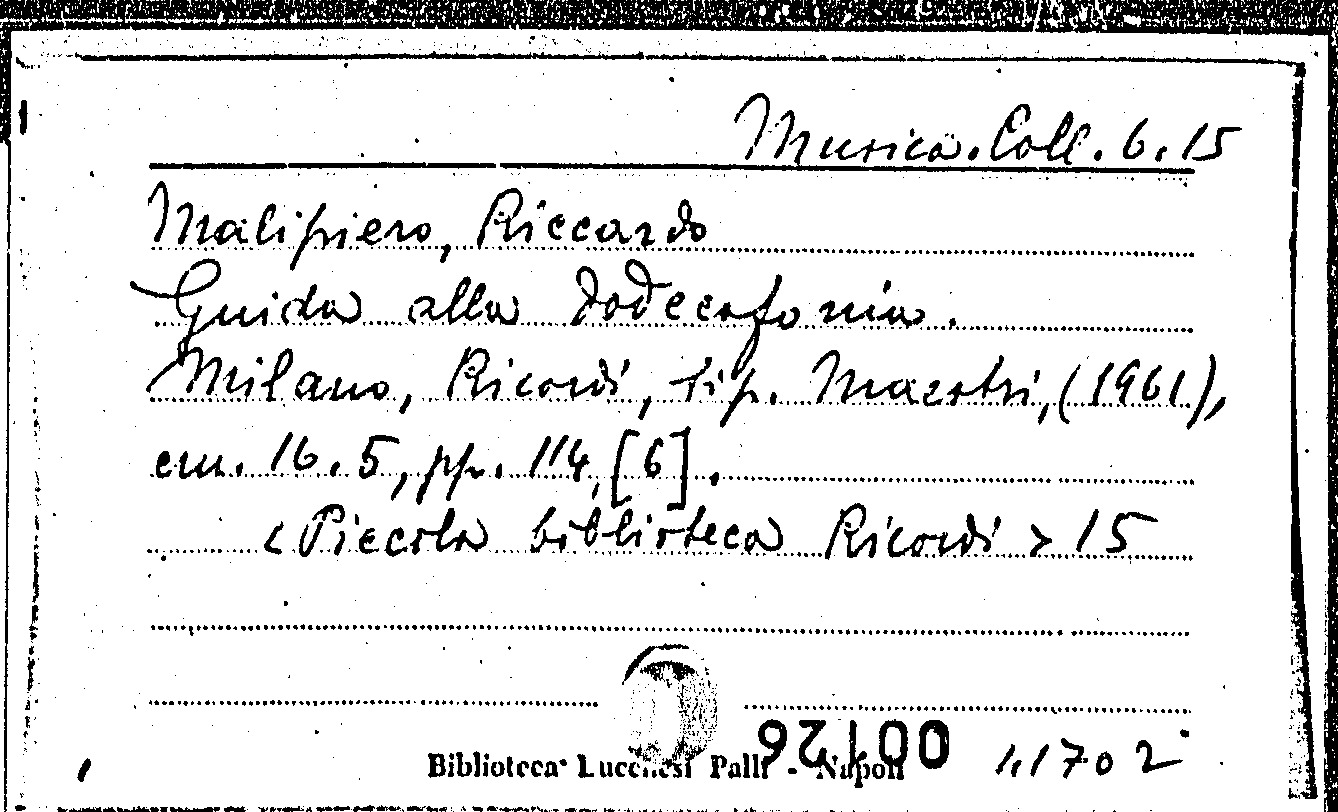 Musica. Coll. 6.15
Malipiero, Riccardo
Guida alla dodecafonia.
Milano, Ricordi, tip. Maestri, (1961),
cm. 16.5, pp. 114, [6].
<Piccola biblioteca Ricordi> 15
00126
Biblioteca Lucchesi Palli - Napoli
11702